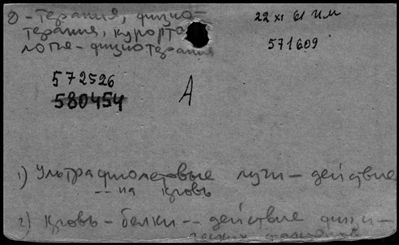 - терапия, физио-
терапия, курорто
логия - физиотерапия
22 XI 61
571609
572526
580454
А
1) Ультрафиолетовые лучи - действие
-- на кровь
2) Кровь - белки -- действие физи-
ческих